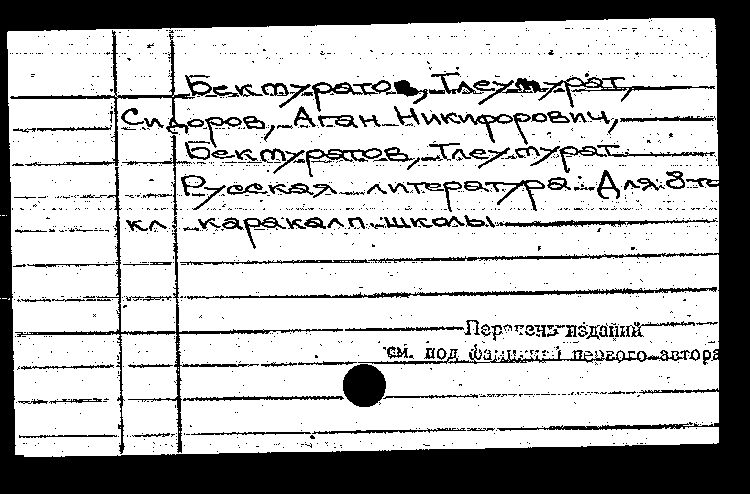 Бектуратов, Тлеумурат,
Сидоров, Аган Никифорович,
Бектуратов, Тлеумурат
Русская литература. Для 8-го
кл. каракалп. школы
Перечень изданий
см. под фамилией первого автора